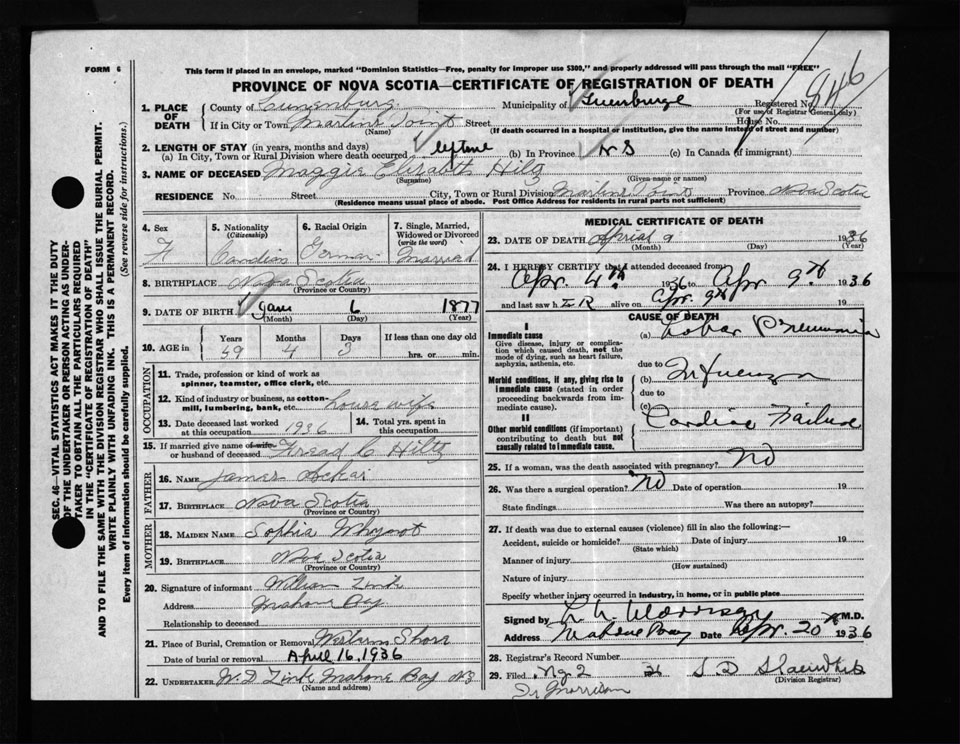 FORM 6
This form if placed in an envelope, marked "Dominion Statistics—Free, penalty for improper use $300," and properly addressed will pass through the mail "FREE"
PROVINCE OF NOVA SCOTIA—CERTIFICATE OF REGISTRATION OF DEATH
846
1. PLACE OF DEATH
County of Lunenburg Municipality of Registered No.
(For use of Registrar General only)
If in City or Town Martins Point Street House No.
(Name) (If death occurred in a hospital or institution, give the name instead of street and number)
2. LENGTH OF STAY (in years, months and days)
(a) In City, Town or Rural Division where death occurred (b) In Province N S (c) In Canada (if immigrant)
3. NAME OF DECEASED Maggie Elizabeth Hiltz
(Surname) (Given name or names)
RESIDENCE No. Street City, Town or Rural Division Martins Point Province Nova Scotia
(Residence means usual place of abode. Post Office Address for residents in rural parts not sufficient)
4. Sex
F
5. Nationality
(Citizenship)
6. Racial Origin
German
7. Single, Married, Widowed or Divorced
(write the word)
Married
8. BIRTHPLACE Nova Scotia
(Province or Country)
9. DATE OF BIRTH 6 1877
(Month) (Day) (Year)
10. AGE in Years Months Days If less than one day old
59 4 3 hrs. or min.
OCCUPATION
11. Trade, profession or kind of work as spinner, teamster, office clerk, etc.
12. Kind of industry or business, as cotton-mill, lumbering, bank, etc. house wife
13. Date deceased last worked at this occupation 1936
14. Total yrs. spent in this occupation
15. If married give name of wife or husband of deceased C Hiltz
FATHER
16. NAME James
17. BIRTHPLACE Nova Scotia
(Province or Country)
MOTHER
18. MAIDEN NAME Sophia
19. BIRTHPLACE Nova Scotia
(Province or Country)
20. Signature of informant William Zink
Address Mahone Bay
Relationship to deceased
21. Place of Burial, Cremation or Removal Western Shore
Date of burial or removal April 16, 1936
22. UNDERTAKER W. D. Zink Mahone Bay NS
(Name and address)
MEDICAL CERTIFICATE OF DEATH
23. DATE OF DEATH 9 1936
(Month) (Day) (Year)
24. I HEREBY CERTIFY that I attended deceased from
Apr. 4th 1936 to Apr 9th 1936
and last saw h alive on Apr. 9th
CAUSE OF DEATH
I
Immediate cause
Give disease, injury or complication which caused death, not the mode of dying, such as heart failure, asphyxia, asthenia, etc.
(a) Lobar Pneumonia
due to
Morbid conditions, if any, giving rise to immediate cause (stated in order proceeding backwards from immediate cause).
(b) Influenza
due to
(c)
II
Other morbid conditions (if important) contributing to death but not causally related to immediate cause.
Cardiac Failure
25. If a woman, was the death associated with pregnancy? No
26. Was there a surgical operation? No Date of operation 19
State findings Was there an autopsy?
27. If death was due to external causes (violence) fill in also the following:—
Accident, suicide or homicide? Date of injury 19
(State which)
Manner of injury
(How sustained)
Nature of injury
Specify whether injury occurred in industry, in home, or in public place
Signed by M.D.
Address Mahone Bay Date Apr. 20 1936
28. Registrar's Record Number
29. Filed 36 S. D.
(Division Registrar)
Dr Morrison
SEC. 46—VITAL STATISTICS ACT MAKES IT THE DUTY OF THE UNDERTAKER OR PERSON ACTING AS UNDERTAKER TO OBTAIN ALL THE PARTICULARS REQUIRED IN THE "CERTIFICATE OF REGISTRATION OF DEATH"
AND TO FILE THE SAME WITH THE DIVISION REGISTRAR WHO SHALL ISSUE THE BURIAL PERMIT.
WRITE PLAINLY WITH UNFADING INK. THIS IS A PERMANENT RECORD.
Every item of information should be carefully supplied. (See reverse side for instructions.)